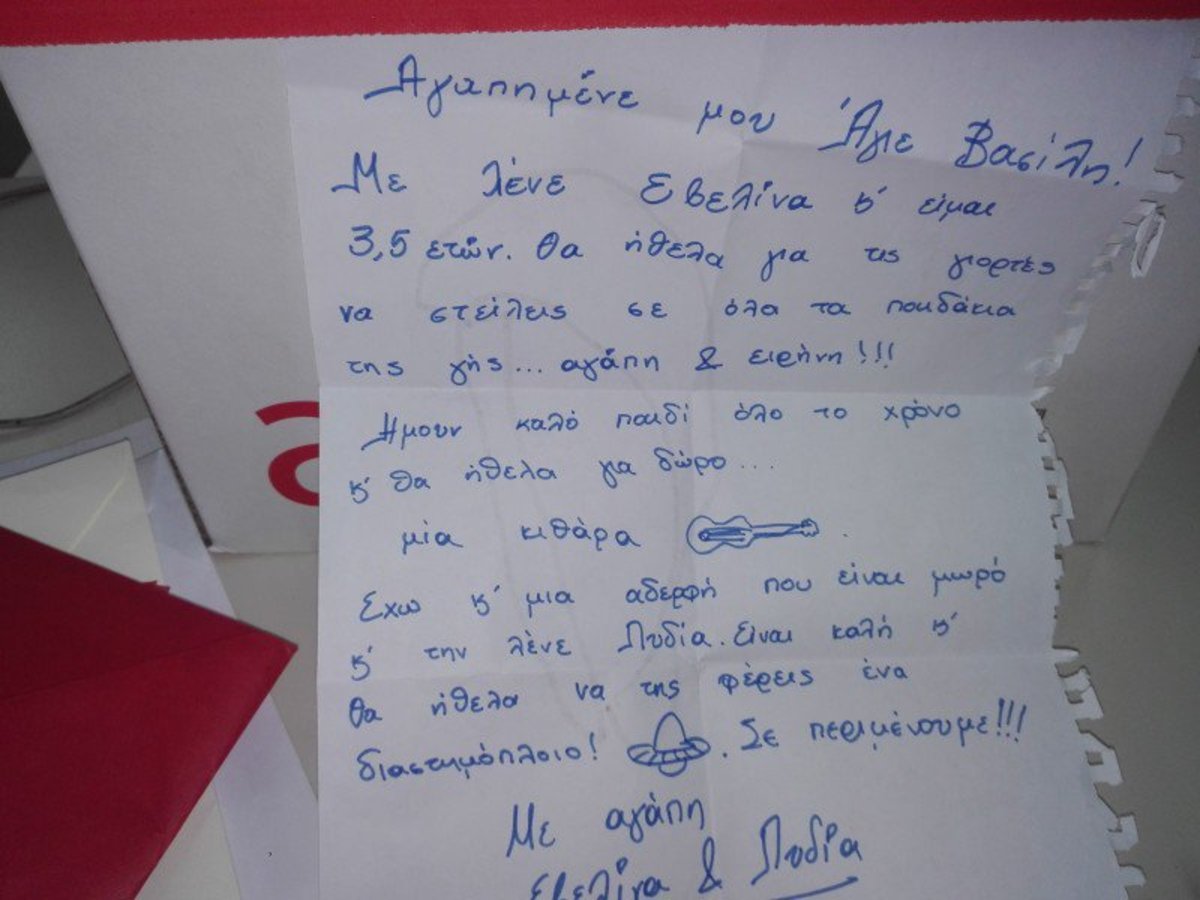 Αγαπημένε μου Άγιε Βασίλη!
Με λένε Εβελίνα κ' είμαι
3,5 ετών. Θα ήθελα για τις γιορτές
να στείλεις σε όλα τα παιδάκια
της γής... αγάπη & ειρήνη!!!
Ήμουν καλό παιδί όλο το χρόνο
κ' θα ήθελα για δώρο...
μία κιθάρα .
Έχω κ' μια αδερφή που είναι μωρό
κ' την λένε Λυδία. Είναι καλή κ'
θα ήθελα να της φέρεις ένα
διαστημόπλοιο! . Σε περιμένουμε!!!
Με αγάπη
Εβελίνα & Λυδία